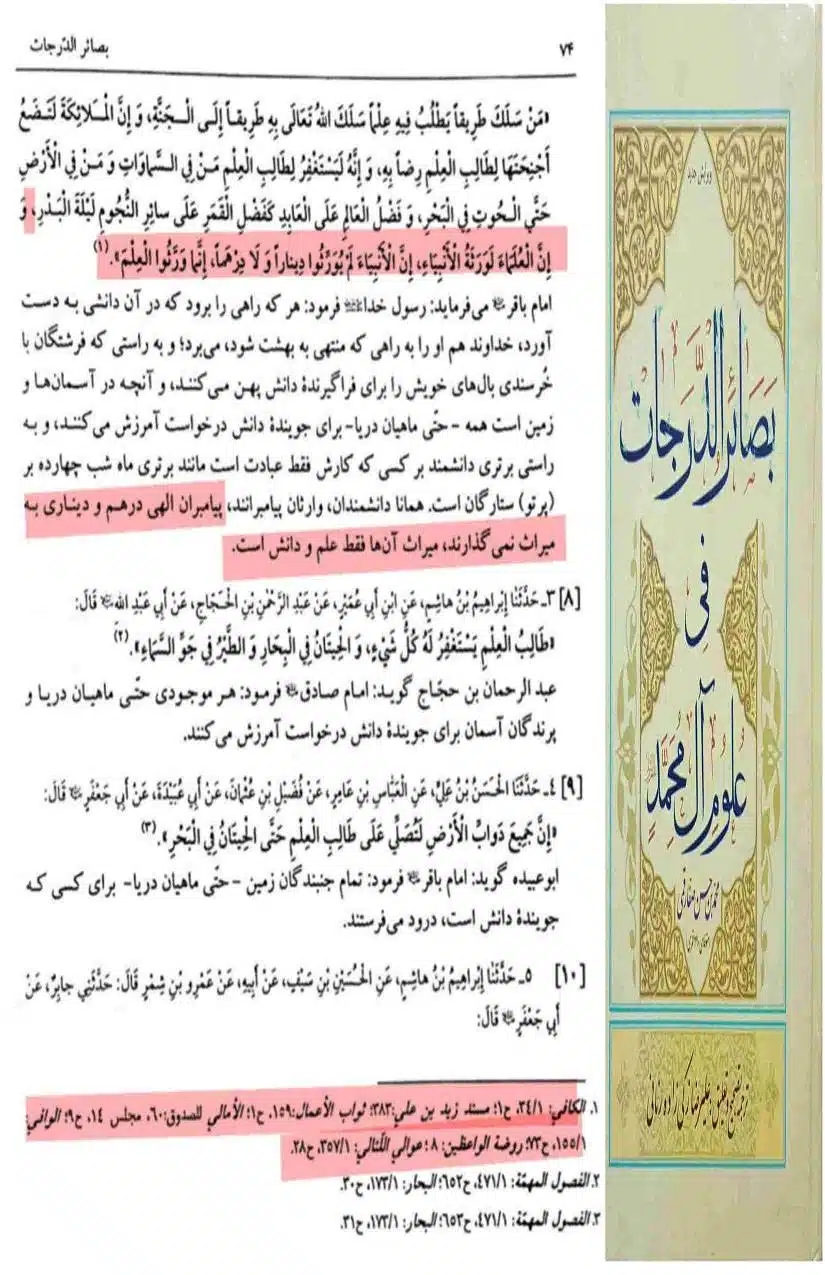 ۷۴
بصائر الدّرجات
«مَنْ سَلَكَ طَرِيقاً يَطْلُبُ فِيهِ عِلْماً سَلَكَ اللهُ تَعَالَى بِهِ طَرِيقاً إِلَى الْجَنَّةِ، وَ إِنَّ الْمَلَائِكَةَ لَتَضَعُ
أَجْنِحَتَهَا لِطَالِبِ الْعِلْمِ رِضاً بِهِ، وَ إِنَّهُ لَيَسْتَغْفِرُ لِطَالِبِ الْعِلْمِ مَنْ فِي السَّمَاوَاتِ وَ مَنْ فِي الْأَرْضِ
حَتَّى الْحُوتِ فِي الْبَحْرِ، وَ فَضْلُ الْعَالِمِ عَلَى الْعَابِدِ كَفَضْلِ الْقَمَرِ عَلَى سَائِرِ النُّجُومِ لَيْلَةَ الْبَدْرِ، وَ
إِنَّ الْعُلَمَاءَ لَوَرَثَةُ الْأَنْبِيَاءِ، إِنَّ الْأَنْبِيَاءَ لَمْ يُوَرِّثُوا دِينَاراً وَ لَا دِرْهَماً، إِنَّمَا وَرَّثُوا الْعِلْمَ».(۱)
امام باقر می‌فرماید: رسول خدا فرمود: هر که راهی را برود که در آن دانشی به دست
آورد، خداوند هم او را به راهی که منتهی به بهشت شود، می‌برد؛ و به راستی که فرشتگان با
خُرسندی بال‌های خویش را برای فراگیرندهٔ دانش پهن می‌کنند، و آنچه در آسمان‌ها و
زمین است همه -حتّی ماهیان دریا- برای جویندهٔ دانش درخواست آمرزش می‌کنند، و به
راستی برتری دانشمند بر کسی که کارش فقط عبادت است مانند برتری ماه شب چهارده بر
(پرتو) ستارگان است. همانا دانشمندان، وارثان پیامبرانند، پیامبران الهی درهم و دیناری به
میراث نمی‌گذارند، میراث آن‌ها فقط علم و دانش است.
[۸] ۳ـ حَدَّثَنَا إِبْرَاهِيمُ بْنُ هَاشِمٍ، عَنِ ابْنِ أَبِي عُمَيْرٍ، عَنْ عَبْدِ الرَّحْمٰنِ بْنِ الْحَجَّاجِ، عَنْ أَبِي عَبْدِ اللهِ قَالَ:
«طَالِبُ الْعِلْمِ يَسْتَغْفِرُ لَهُ كُلُّ شَيْءٍ، وَ الْحِيتَانُ فِي الْبِحَارِ وَ الطَّيْرُ فِي جَوِّ السَّمَاءِ».(۲)
عبد الرحمان بن حجّاج گوید: امام صادق فرمود: هر موجودی حتّی ماهیان دریا و
پرندگان آسمان برای جویندهٔ دانش درخواست آمرزش می‌کنند.
[۹] ۴ـ حَدَّثَنَا الْحَسَنُ بْنُ عَلِيٍّ، عَنِ الْعَبَّاسِ بْنِ عَامِرٍ، عَنْ فُضَيْلِ بْنِ عُثْمَانَ، عَنْ أَبِي عُبَيْدَةَ، عَنْ أَبِي جَعْفَرٍ قَالَ:
«إِنَّ جَمِيعَ دَوَابِّ الْأَرْضِ لَتُصَلِّي عَلَى طَالِبِ الْعِلْمِ حَتَّى الْحِيتَانُ فِي الْبَحْرِ».(۳)
ابوعبیده گوید: امام باقر فرمود: تمام جنبندگان زمین -حتّی ماهیان دریا- برای کسی که
جویندهٔ دانش است، درود می‌فرستند.
[۱۰] ۵ـ حَدَّثَنَا إِبْرَاهِيمُ بْنُ هَاشِمٍ، عَنِ الْحُسَيْنِ بْنِ سَيْفٍ، عَنْ أَبِيهِ، عَنْ عَمْرِو بْنِ شِمْرٍ قَالَ: حَدَّثَنِي جَابِرٌ، عَنْ
أَبِي جَعْفَرٍ قَالَ:
۱. الكافي: ۳۴/۱، ح۱؛ مسند زيد بن علي: ۳۸۳؛ ثواب الأعمال: ۱۵۹، ح۱؛ الأمالي للصدوق: ۶۰، مجلس ۱۴، ح۹؛ الوافي:
۱۵۵/۱، ح۷۳؛ روضة الواعظين: ۸؛ عوالي اللئالي: ۳۵۷/۱، ح۲۸.
۲. الفصول المهمّة: ۴۷۱/۱، ح۶۵۲؛ البحار: ۱۷۳/۱، ح۳۰.
۳. الفصول المهمّة: ۴۷۱/۱، ح۶۵۳؛ البحار: ۱۷۳/۱، ح۳۱.
ویرایش جدید
بَصَائِرُ الدَّرَجَات
فِي
عُلُومِ آلِ مُحَمَّدٍ
محمد بن حسن صفار قمی
ترجمه تصحیح و تعلیق: علیرضا زکی زاده رنانی